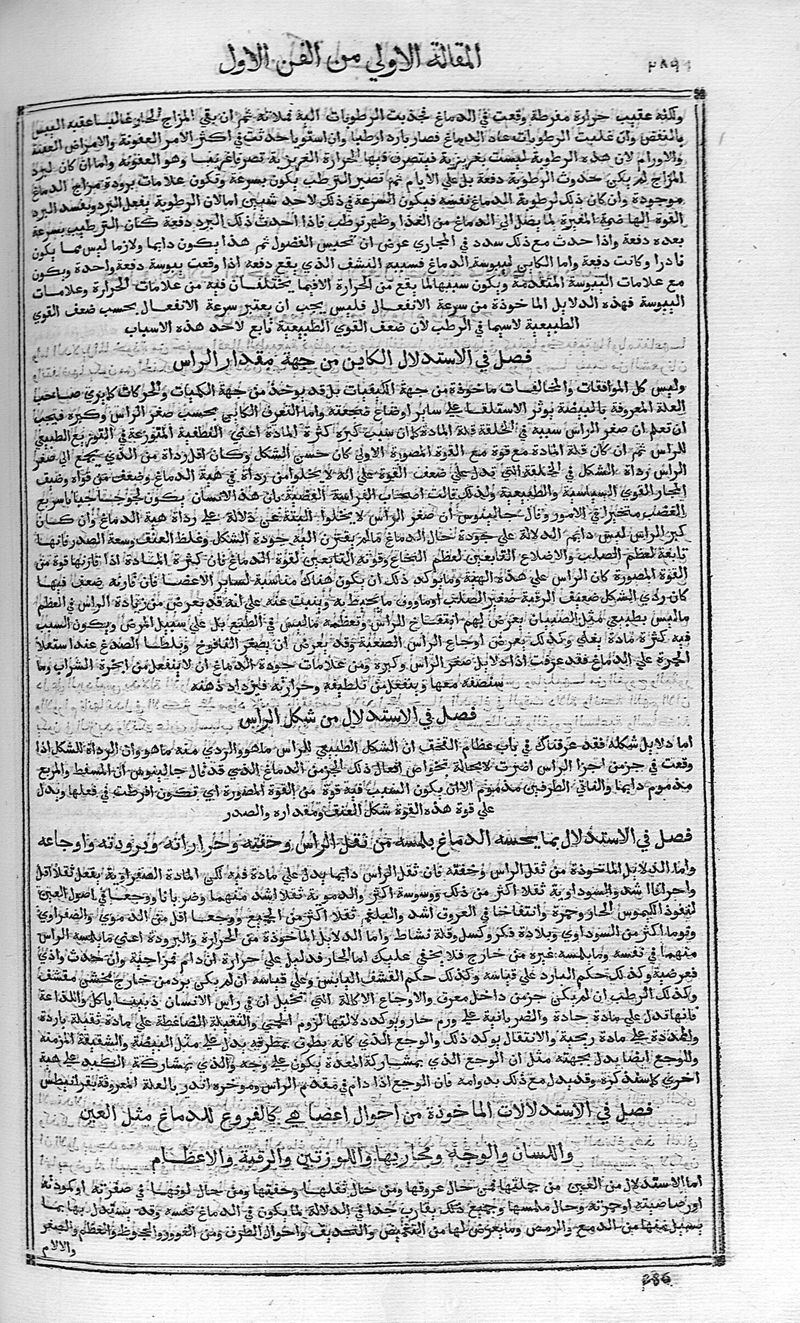 المقالة الاولي من الفن الاول
٢٨٩
ولكنه عقيب حرارة مفرطة وقعت في الدماغ فجذبت الرطوبات اليه فملاته ثم ان بقي المزاج الحار غالبا عقبه اليبس
بالنفض وان غلبت الرطوبات عاد الدماغ فصار باردا رطبا وان استويا حدثت في اكثر الامر العفونة والامراض العفنة
والاورام لان هذه الرطوبة ليست بغريزية فيتصرف فيها الحرارة الغريزية تصرفا غريبا وهو العفونة واما ان كان لبرد
المزاج لم يكن حدوث الرطوبة دفعة بل علي الايام ثم تصير الترطب يكون بسرعة وتكون علامات برودة مزاج الدماغ
موجودة وان كان ذلك لرطوبة الدماغ نفسه فيكون السرعة في ذلك لاحد شيين اما لان الرطوبة بفعل البرد ويفسد البرد
القوة الهاضمة المغيرة لما يصل الي الدماغ من الغذا وظهر ترطب فاذا احدث ذلك البرد دفعة كان الترطيب بسرعة
بعده دفعة واذا حدث مع ذلك سدد في المجاري عرض ان تحبس الفضول ثم هذا يكون دايما ولازما ليس مما يكون
نادرا وكانت دفعة واما الكاين ليبوسة الدماغ فسببه النشف الذي يقع دفعة اذا وقعت يبوسة دفعة واحدة ويكون
مع علامات اليبوسة المتقدمة ويكون سبيهالما يقع من الحرارة الا فيما يختلفان فيه من علامات الحرارة وعلامات
اليبوسة فهذه الدلايل الماخوذة من سرعة الانفعال فليس يجب ان يعتبر سرعة الانفعال بحسب ضعف القوي
الطبيعية لاسيما في الرطب لان ضعف القوي الطبيعية تابع لاحد هذه الاسباب
فصل في الاستدلال الكاين من جهة مقدار الراس
وليس كل الموافقات والمخالفات ماخوذة من جهة الكيفيات بل قد يوخذ من جهة الكميات والحركات كايري صاحب
العلة المعروفة بالبيضة يوثر الاستلقا علي ساير اوضاع ضجعته واما التعرف الكاين بحسب صغر الراس وكبره فيجب
ان تعلم ان صغر الراس سببه في الخلقة قلة المادة كما ان سبب كبره كثرة المادة اعني النطفية المتوزعة في التوزيع الطبيعي
للراس ثم ان كان قلة المادة مع قوة مع القوة المصورة الاولي كان حسن الشكل وكان اقل رداة من الذي يجمع الي صغر
الراس رداة الشكل في الخلقة التي تدل علي ضعف القوة علي انه لا يخلوا من رداة في هية الدماغ وضعف من قواه وضيف
المجار القوي السياسية والطبيعية ولذلك قالت اصحاب الفراسة القضية بان هذا الانسان يكون لجوجا جبانا سريع
الغضب متحيرا في الامور وقال جالينوس ان صغر الراس لا يخلوا البتة عن دلالة علي رداة هية الدماغ وان كان
كبر الراس ليس دايم الدلالة علي جودة حال الدماغ مالم يقترن اليه جودة الشكل وغلظ العنق وسعة الصدر فانها
تابعة لعظم الصلب والاضلاع التابعين لعظم النخاع وقوته التابعين لقوة الدماغ فان كثرة المادة اذا قارنها قوة من
القوة المصورة كان الراس علي هذه الهية ومما يوكد ذلك ان يكون هناك مناسبة لساير الاعضا فان قارنه ضعف فيها
كان ردي الشكل ضعيف الرقبة صغير الصلب او ماووف ما يحيط به وينبت عنه علي انه قد يعرض من زيادة الراس في العظم
ما ليس بطبيعي مثل الصبيان يعرض لهم انتفاخ الراس وتعظمه ما ليس في الطبع بل علي سبيل المرض ويكون السبب
فيه كثرة مادة يغلي وكذلك يعرض اوجاع الراس الصعبة وقد يعرض ان يصغر اليافوخ ويلطا الصدغ عند استعلا
الحمرة علي الدماغ فقد عرفت اذا دلايل صغر الراس وكبره ومن علامات جودة الدماغ ان لا ينفعل من ابخرة الشراب وما
سنصفه معها وينفعل من تلطيفه وحرارته فيزداد ذهنه
فصل في الاستدلال من شكل الراس
اما دلايل شكله فقد عرفناك في باب عظام القحف ان الشكل الطبيعي للراس ماهو والردي منه ماهو وان الرداة للشكل اذا
وقعت في جزء من اجزا الراس اضرت لا محالة بخواص افعال ذلك الجزء من الدماغ الذي قد قال جالينوس ان المسفط والمربع
مذموم دايما والناتي الطرفين مذموم الا ان يكون السبب فيه قوة من القوة المصورة اي تكون افرطت في فعلها ويدل
علي قوة هذه القوة شكل العنق ومقداره والصدر
فصل في الاستدلال بما يحسه الدماغ بلمسه من ثقل الراس وخفته وحرارته وبرودته واوجاعه
واما الدلايل الماخوذة من ثقل الراس وخفته فان ثقل الراس دايما يدل علي مادة فيه لكن المادة الصفراوية يفعل ثقلا اقل
واحراقا اشد والسوداوية ثقلا اكثر من ذلك ووسوسة اكثر والدموية ثقلا اشد منهما وضربانا ووجعا في اصول العين
لنفوذ الكيموس الحار وحمرة وانتفاخا في العروق اشد والبلغم ثقلا اكثر من الجميع ووجعا اقل من الدموي والصفراوي
ونوما اكثر من السوداوي وبلادة فكر وكسل وقلة نشاط واما الدلايل الماخوذة من الحرارة والبرودة اعني ما يلمسه الراس
منهما في نفسه وما يلمسه غيره من خارج فلا يخفي عليك اما الحار فدليل علي حرارة ان دام فمزاجية وان حدث واذي
فعرضية وكذلك حكم البارد علي قياسه وكذلك حكم القشف اليابس وعلي قياسه ان لم يكن برد من خارج مخشن مقشف
وكذلك الرطب ان لم يكن حر من داخل معرق والاوجاع الاكالة التي تخيل ان في راس الانسان دبيبا ياكل واللذاعة
فانها تدل علي مادة حادة والضربانية علي ورم حار ويوكد دلالتها لزوم الحمي والثقيلة الضاغطة علي مادة ثقيلة باردة
والممددة علي مادة ريحية والانتقال يوكد ذلك والوجع الذي كانه يطرق بمطرقة يدل علي مثل البيضة والشقيقة المزمنة
وللوجع ايضا يدل بجهته مثل ان الوجع الذي بمشاركة المعدة يكون علي وجه والذي بمشاركة الكبد علي هية
اخري كما سنذكره وقد يدل مع ذلك بدوامه فان الوجع اذا دام في مقدم الراس وموخره انذر بالعلة المعروفة بقرانيطس
فصل في الاستدلالات الماخوذة من احوال اعضا هي كالفروع للدماغ مثل العين
واللسان والوجه ومجاريها واللوزتين والرقبة والاعظام
اما الاستدلال من العين من جملتها فمن حال عروقها ومن حال ثقلها وخفتها ومن حال لونها في صفرته او كمودته
او رصاصيته او حمرته وحال ملمسها وجميع ذلك يقارب جدا في الدلالة لما يكون في الدماغ نفسه وقد يستدل بها بما
يسيل منها من الدمع والرمص وما يعرض لها من التغميض والتحديق واحوال الطرف ومن الغوور والجحوظ والعظم والصغر
والالام
286